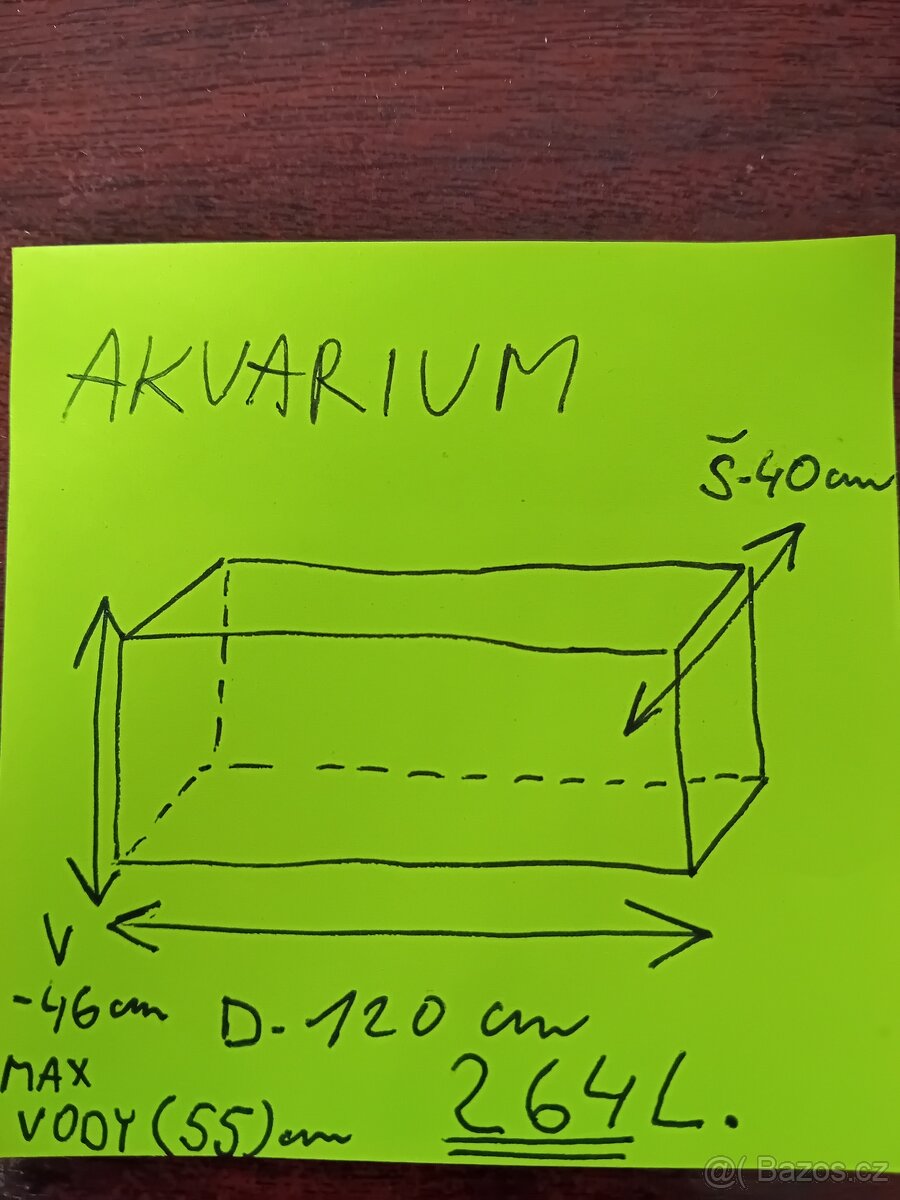 AKVARIUM
Š-40cm
V
-46cm
D-120 cm
MAX
VODY (55)cm
264L.
@( Bazos.cz